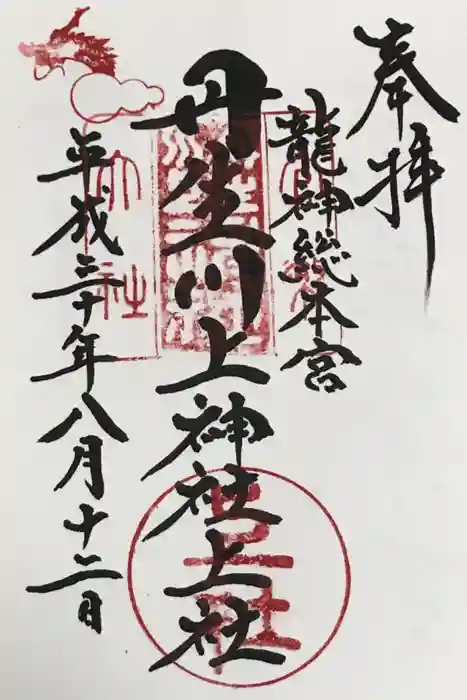 奉拝
龍神総本宮
丹生川上神社上社
平成三十年八月十二日
上社